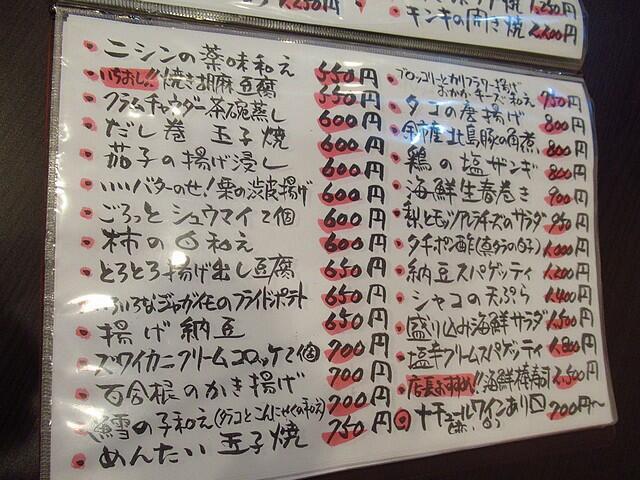 1,250円
1,250円
キンキの開き焼 2,200円
ニシンの薬味和え 550円
いちおし!! 焼き胡麻豆腐 550円
クラムチャウダー茶碗蒸し 600円
だし巻玉子焼 600円
茄子の揚げ浸し 600円
いいバターのせ!栗の渋皮揚げ 600円
ごろっとシュウマイ2個 600円
柿の白和え 600円
とろとろ揚げ出し豆腐 650円
いろいろなジャガイモのフライドポテト 650円
揚げ納豆 650円
ズワイカニクリームコロッケ2個 700円
百合根のかき揚げ 700円
鱈の子和え(タラコとこんにゃくの和え) 700円
めんたい玉子焼 750円
ブロッコリーとカリフラワー揚げ
おかかチーズ和え 750円
タコの唐揚げ 800円
余市産北島豚の角煮 800円
鶏の塩ザンギ 800円
海鮮生春巻き 900円
梨とモッツアレラチーズのサラダ 950円
タチポン酢(真ダラの白子) 1,000円
納豆スパゲッティ 1,200円
シャコの天ぷら 1,400円
盛り込み海鮮サラダ 1,500円
塩辛クリームスパゲッティ 1,800円
店長おすすめ!! 海鮮棒寿司 2,500円
ナチュールワインあり〼 700円〜
(赤、白)